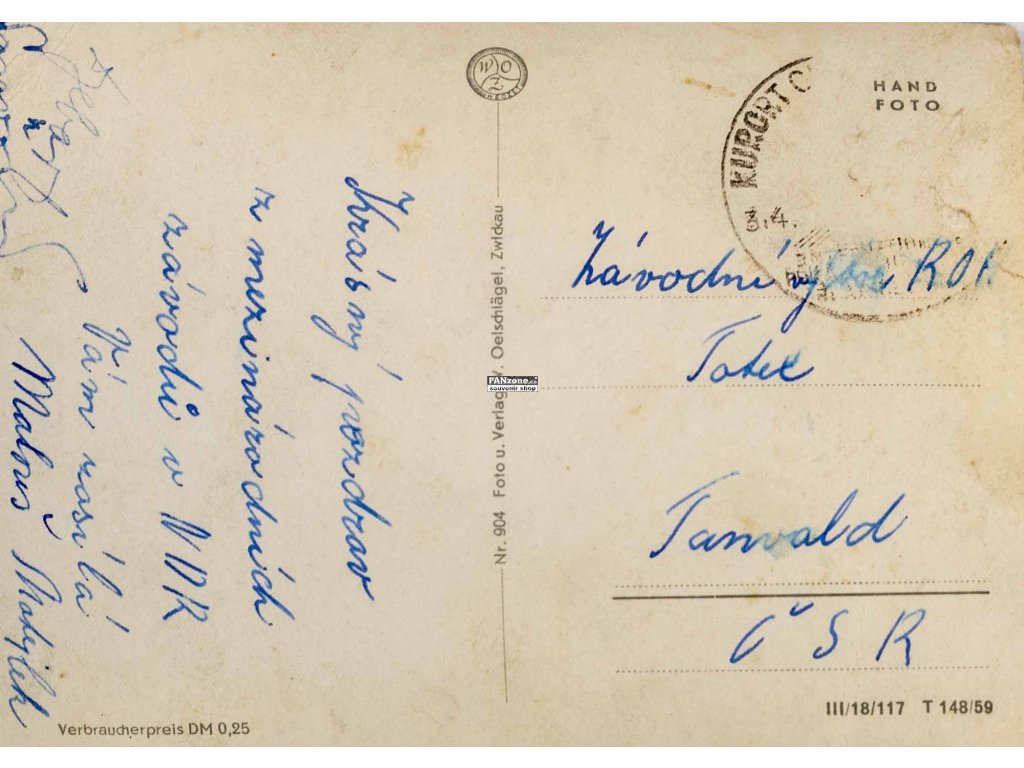 Krásný pozdrav
z mezinárodních
závodů v NDR
Vám zasílá
Matouš
WOZ
Nr. 904 Foto u. Verlag W. Oelschlägel, Zwickau
FANzone.cz
souvenir shop
KURORT
3.4.
HAND
FOTO
Závodní výbor ROH
Totex
Tanvald
ČSR
Verbraucherpreis DM 0,25
III/18/117 T 148/59